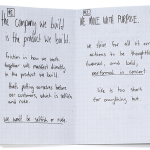 the company we build
is the product we build.
friction in how we work
together will manifest directly
in the product we build.
that's putting ourselves before
our customers, which is selfish
and rude.
we won't be selfish or rude.
WE MOVE WITH PURPOSE.
we first for all of our
actions to be thoughtful
learned, and bold,
performed in concert
life is too short
for anything but